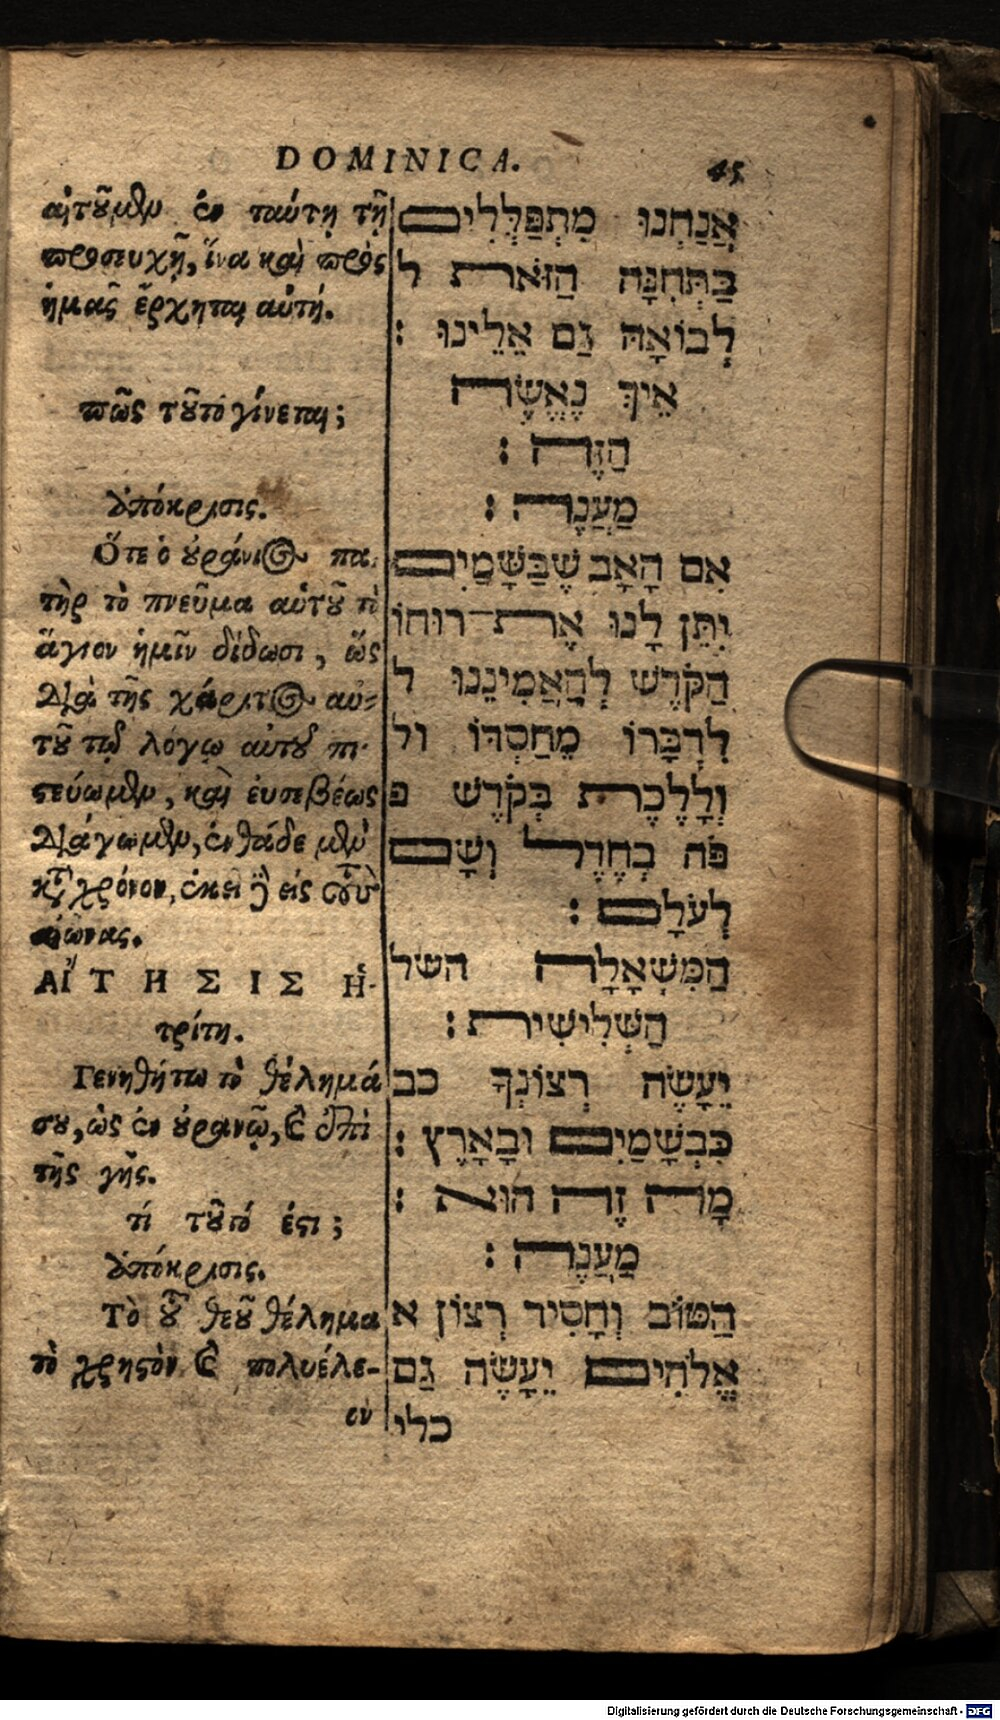 DOMINICA.
45
αἰτοῦμεν ἐν ταύτῃ τῇ
προσευχῇ, ἵνα καὶ πρὸς
ἡμᾶς ἔρχηται αὐτή.
πῶς τοῦτο γίνεται;
ἀπόκρισις.
Ὅτε ὁ οὐράνιος πα-
τὴρ τὸ πνεῦμα αὐτοῦ τὸ
ἅγιον ἡμῖν δίδωσι, ὥς
διὰ τῆς χάριτος αὐ-
τοῦ τῷ λόγῳ αὐτοῦ πι-
στεύωμεν, καὶ εὐσεβέως
διάγωμεν, ἐνθάδε μὲν
κατὰ χρόνον, ἐκεῖ δὲ εἰς τοὺς
αἰῶνας.
ΑΙ῎ΤΗΣΙΣ Ἡ
τρίτη.
Γενηθήτω τὸ θέλημά
σου, ὡς ἐν οὐρανῷ, καὶ ἐπὶ
τῆς γῆς.
τί τοῦτό ἐστι;
ἀπόκρισις.
Τὸ τοῦ θεοῦ θέλημα
τὸ χρηστὸν καὶ πολυέλε-
ον
אֲנַחְנוּ מִתְפַּלְּלִים
בַּתְּחִנָּה הַזֹּאת ל
לְבוֹאָהּ גַּם אֵלֵינוּ :
אֵיךְ נֶאֱשֶׂה
הַזֶּה :
מַעֲנֶה :
אִם הָאָב שֶׁבַּשָּׁמַיִם
יִתֵּן לָנוּ אֶת־רוּחוֹ
הַקֹּדֶשׁ לְהַאֲמִינֵנוּ ל
לִדְבָרוֹ מֵחַסְדּוֹ ול
וְלָלֶכֶת בְּקֹדֶשׁ פ
פֹּה בְּחֶדֶל וְשָׁם
לְעֹלָם :
הַמִּשְׁאָלָה השל
הַשְּׁלִישִׁית :
יֵעָשֶׂה רְצוֹנְךָ כב
כִּבְשָׁמַיִם וּבָאָרֶץ :
מָה זֶה הוּא :
מַעֲנֶה :
הַטּוֹב וְחָסִיד רְצוֹן א
אֱלֹהִים יֵעָשֶׂה גַּם
כלי
Digitalisierung gefördert durch die Deutsche Forschungsgemeinschaft - DFG